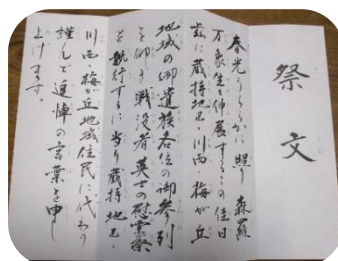 祭文
春光うららかに照り森羅
万象生を伸展するこの佳日
茲に蔵持地区・川西・梅が丘
地域の御遺族各位の御参列
を仰ぎ戦没者英士の慰霊祭
を執行するに当り蔵持地区・
川西・梅が丘地域住民に代わり
謹んで追悼の言葉を申し
上げます。